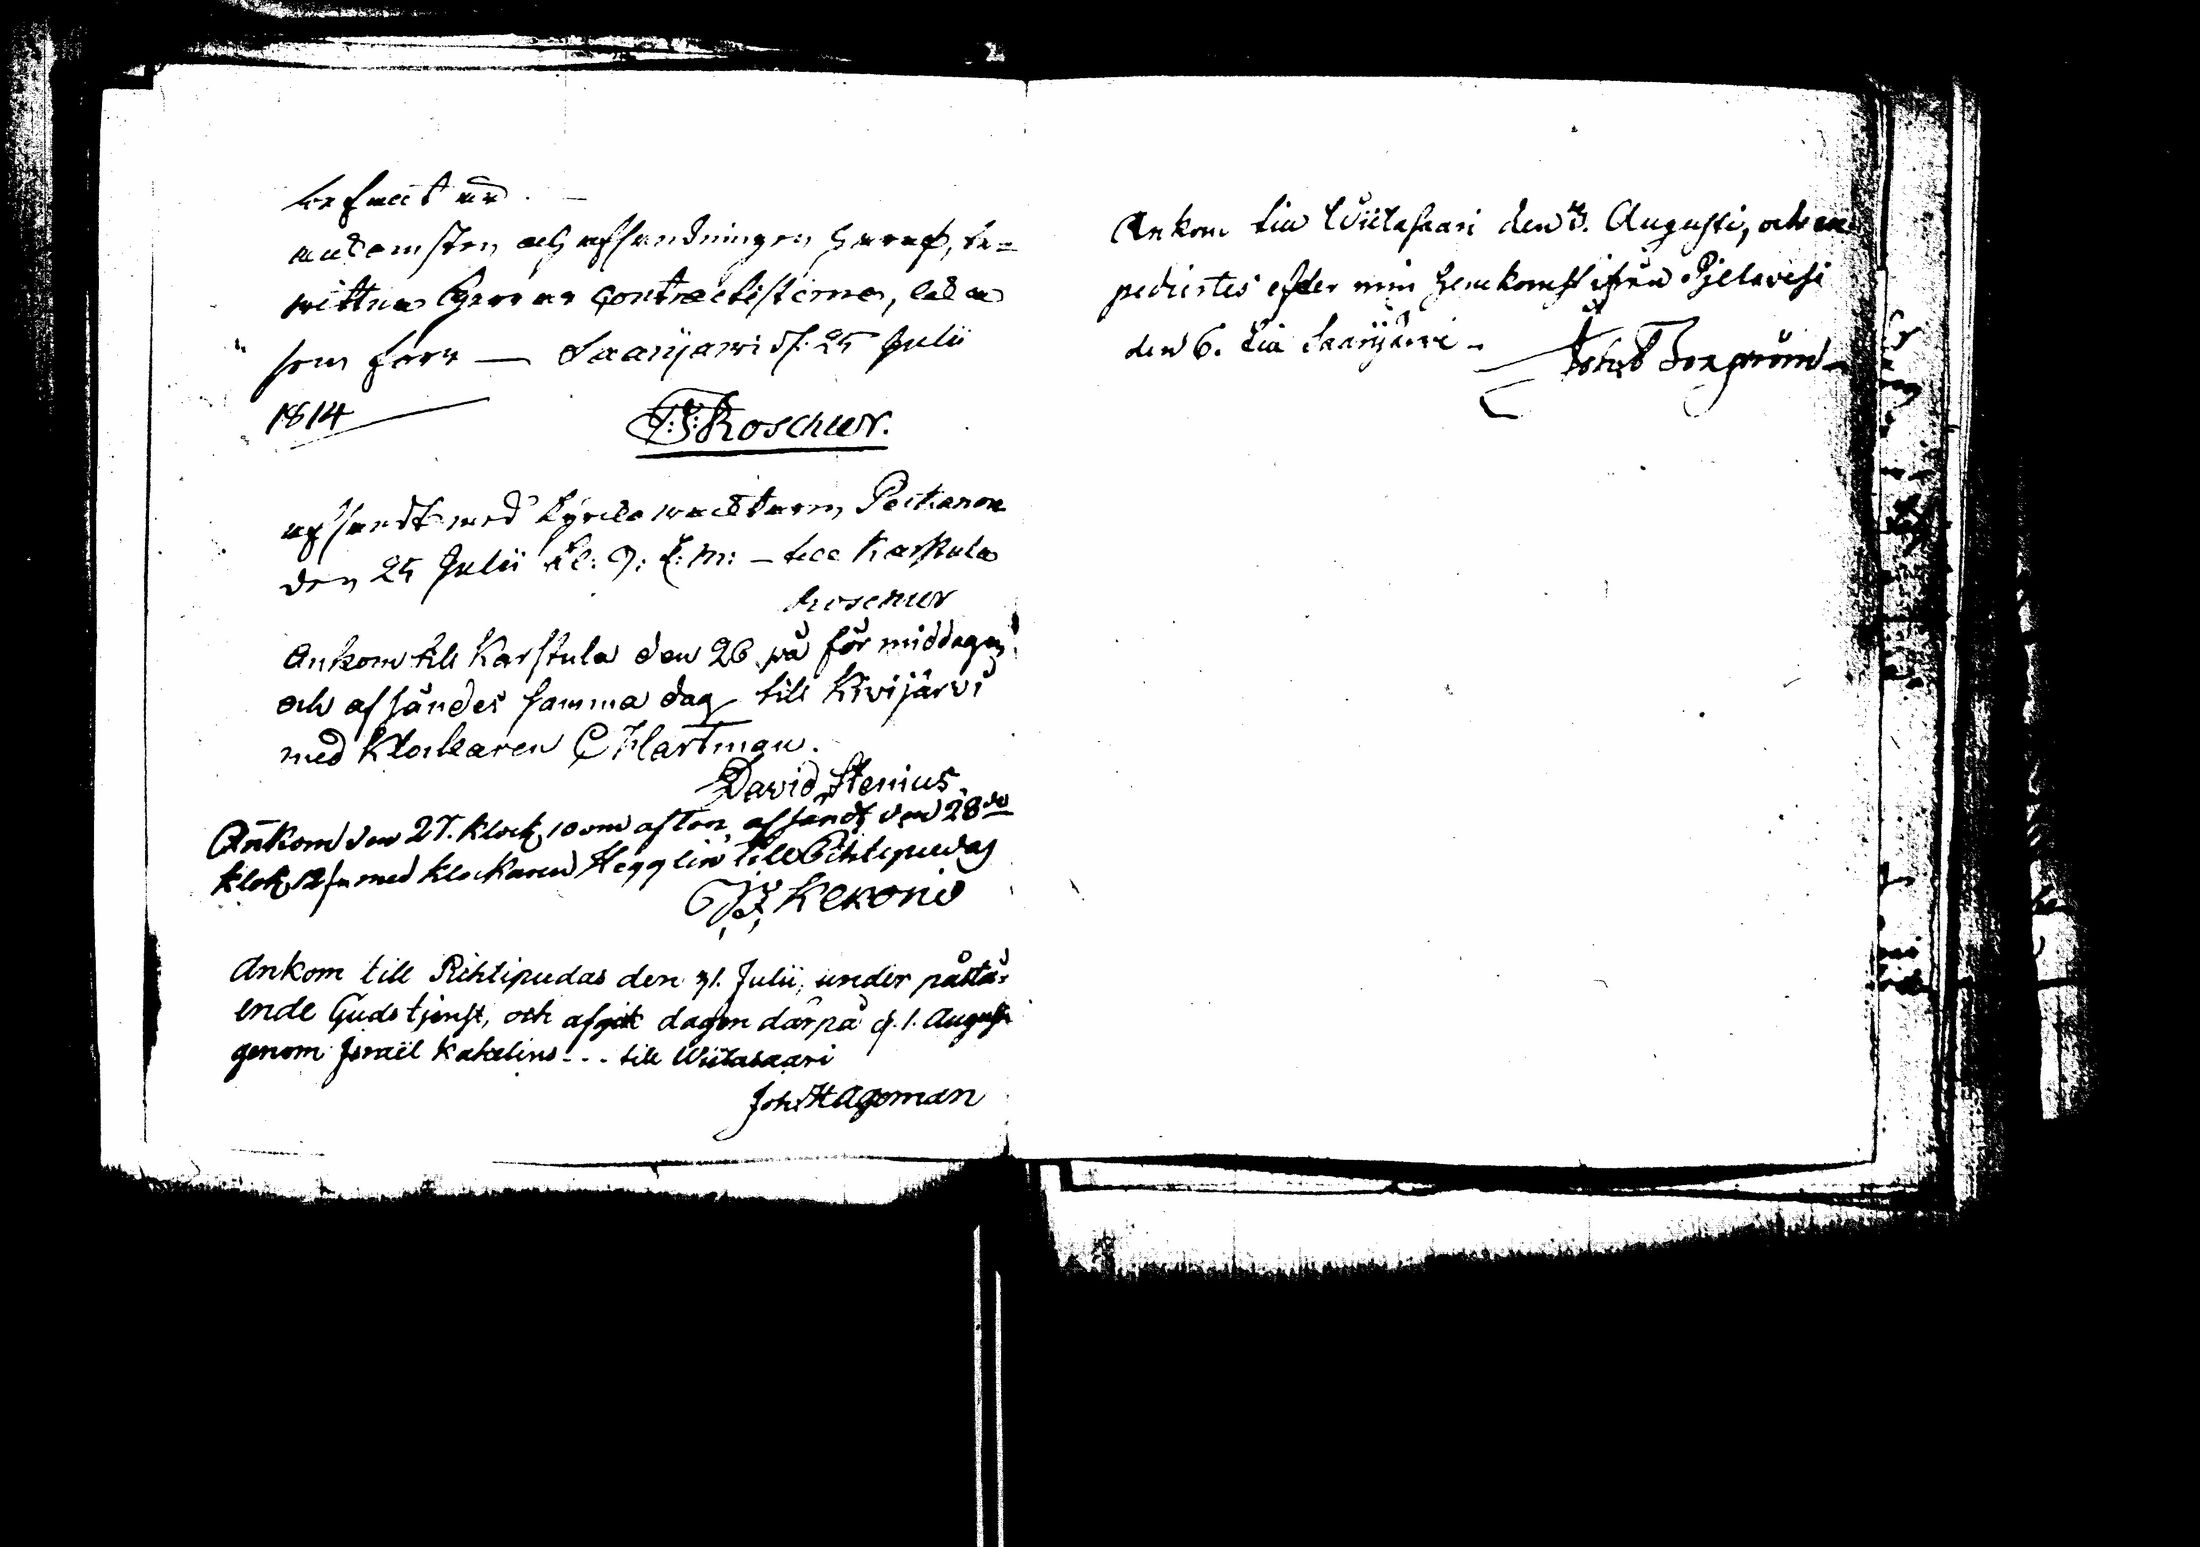 ankomsten och afsändningen häraf, be-
Herrar Contractisterne,
som förr — Saarijärvi d. 25 Julii
1814
Roschier.
afsändt med Kyrkowacktarn Pećkanen
den 25 Julii kl: 9: f: m: — till Karstula
Roschier
Ankom till Karstula den 26 på för middagen
och afsändes samma dag till Kivijärvi
med Klockaren C Hartman.
David Stenius
Ankom den 27. klock. 10 om afton, afsändt den 28de
klok 12 med klockaren Hegglin till Pihtipudas
Kekonius
Ankom till Pihtipudas den 31. Julii, under påstå-
ende Gudstjenst, och afgick dagen därpå d. 1. Augusti
genom Israël - - - till Wiitasaari
Joh. Hagman
Ankom till Wiitasaari den 3. Augusti, och ex-
pediertes efter min hemkomst ifrån Pjelavesi
den 6. till Saarijärvi -